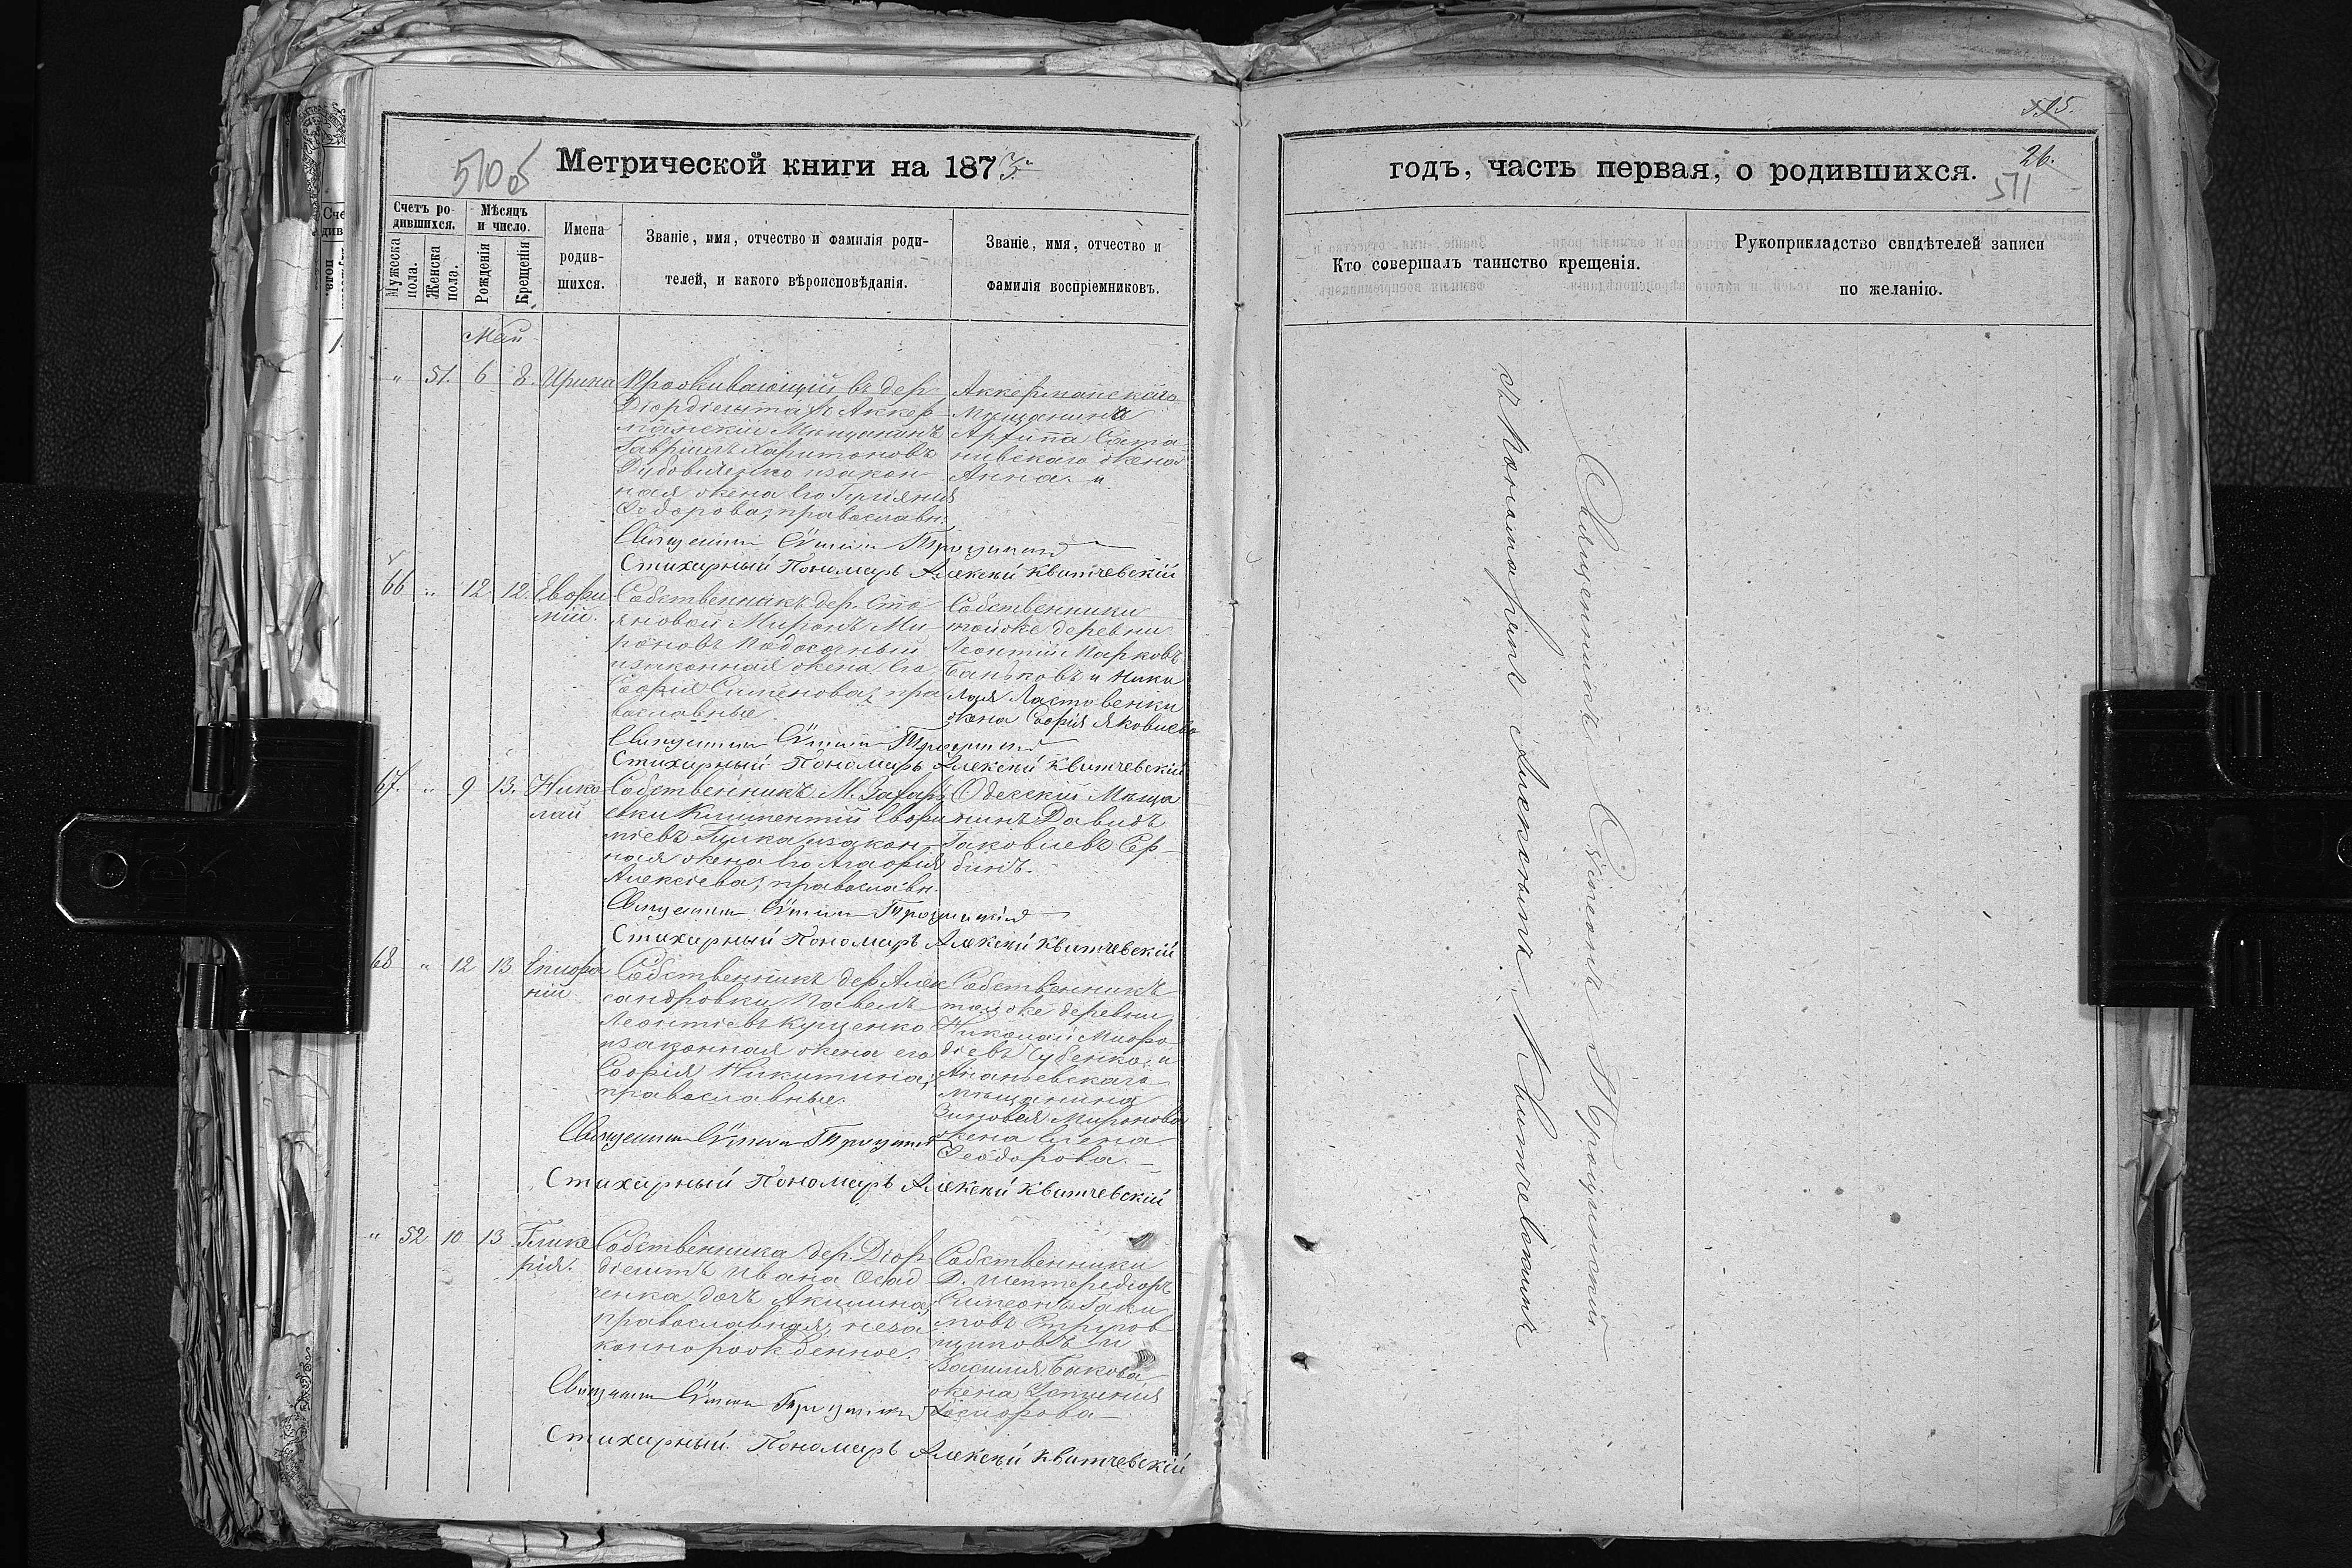 510 об
Метрической книги на 1873
Счетъ ро-
дившихся.
Мѣсяцъ
и число.
Мужеска
пола.
Женска
пола.
Рожденія
Крещенія
Имена
родив-
шихся.
Званіе, имя, отчество и фамилія роди-
телей, и какого вѣроисповѣданія.
Званіе, имя, отчество и
фамилія воспріемниковъ.
Май
" 51. 6 8. Ирина
Проживающій въ дер
Аккер-
манскій Мѣщанинъ
Гавріилъ Харитоновъ
и закон
ная жена его
Федорова, православн.
Аккерманскаго
Мѣщанина
жена
Анна.
Священникъ Симеонъ Троицкій
Стихарный Пономарь Алексѣй Квитчевскій
66 " 12 12. Евфи
мій.
Собственникъ дер. Сто
яновой Миронъ Ми
роновъ
и законная жена его
Софія Симеонова, пра
вославные.
Собственники
тойже деревни
Леонтій Марковъ
Баньковъ и Нико
лая Ластовенки
жена Софія Яковлева
Священникъ Симеонъ Троицкій
Стихарный Пономарь Алексѣй Квитчевскій
67. " 9 13. Нико
лай
Собственникъ М. Захарь
евки Климентій Евфи
міевъ и закон
ная жена его Агафія
Алексіева, православн.
Одесскій Мѣща
нинъ Давидъ
Іаковлевъ Сер
бинъ.
Священникъ Симеонъ Троицкій
Стихарный Пономарь Алексѣй Квитчевскій
68 " 12 13 Епифа
ній.
Собственникъ дер Алек
сандровки Павелъ
Леонтіевъ Куценко
и законная жена его
Софія Никитина,
православные.
Собственникъ
тойже деревни
Николай Мефо
діевъ Губенко, и
Ананьевскаго
мѣщанина
Зиновея Миронова
жена Елена
Феодорова.
Священникъ Симеонъ Троицкій
Стихарный Пономарь Алексѣй Квитчевскій
" 52 10 13 Глике
рія.
Собственника дер. Діор
діештъ Ивана Осад
ченка дочь Акилина,
православная, неза
коннорожденное.
Собственники
Д.
Симеонъ Іаки
мовъ
и
Василія Быкова
жена
Священникъ Симеонъ Троицкій
Стихарный Пономарь Алексѣй Квитчевскій
годъ, часть первая, о родившихся.
26.
511
Кто совершалъ таинство крещенія.
Рукоприкладство свидѣтелей записи
по желанію.
Священникъ Симеонъ Троицкій
съ Пономаремъ Алексѣемъ Квитчевскимъ